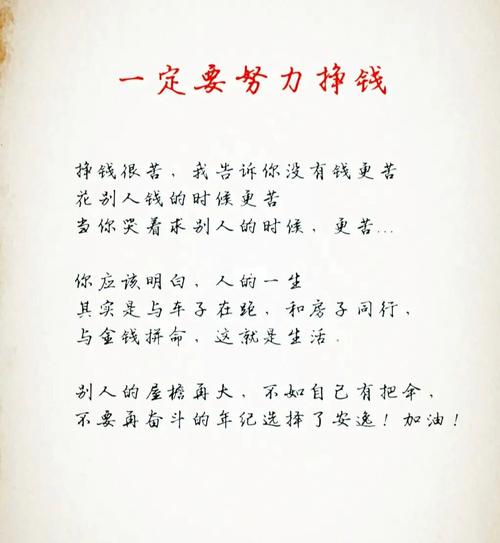 一定要努力挣钱
挣钱很苦，我告诉你没有钱更苦
花别人钱的时候更苦
当你哭着求别人的时候，更苦...
你应该明白，人的一生
其实是与车子在跑，和房子同行，
与金钱拼命，这就是生活．
别人的屋檐再大，不如自己有把伞，
不要再奋斗的年纪选择了安逸！加油！